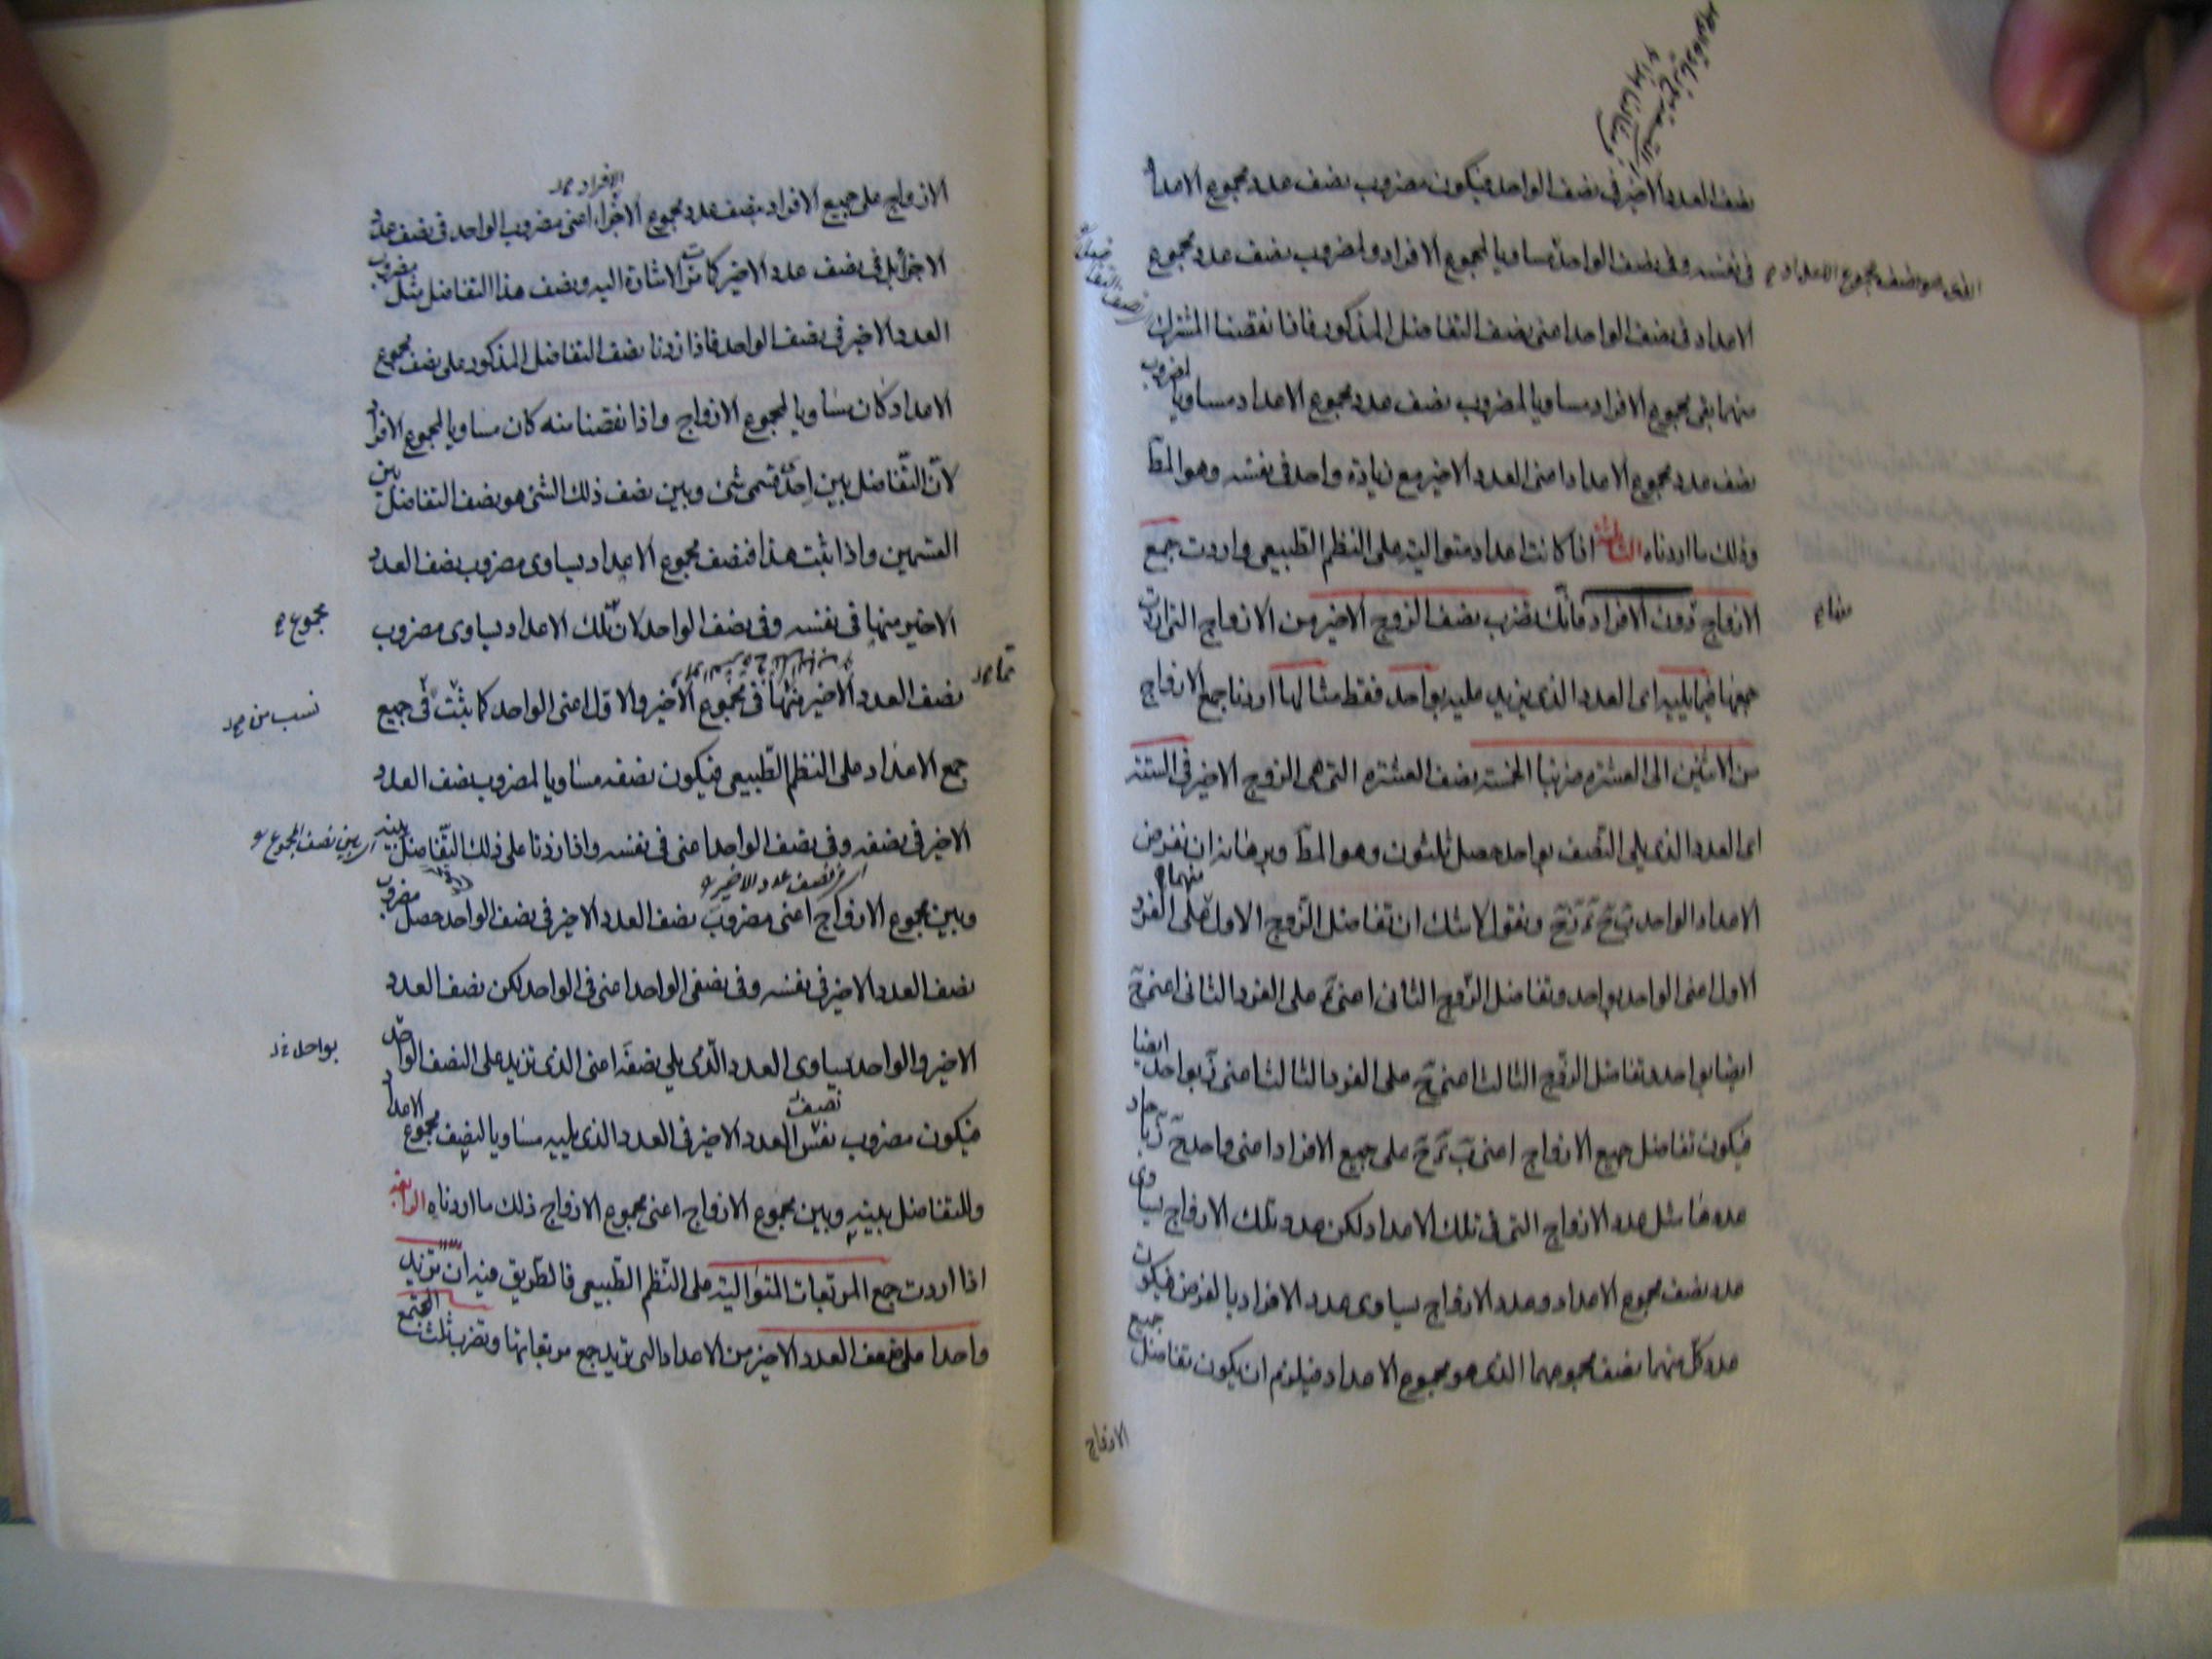 نصف العدد الاخير فى نصف الواحد فيكون مضروب نصف عدد مجموع الاعداد
فى نفسه وفى نصف الواحد مساويا لمجموع الافراد ولمضروب نصف عدد مجموع
الذى هو نصف مجموع الاعداد
الاعداد فى نصف الواحد اعنى نصف التفاضل المذكور فاذا نقصنا المشترك
منهما بقى مجموع الافراد مساويا لمضروب نصف عدد مجموع الاعداد مساويا لمضروب
نصف عدد مجموع الاعداد اعنى العدد الاخير مع زيادة واحد فى نفسه وهو المط
وذلك ما اردناه الثالثة اذا كانت اعداد متوالية على النظم الطبيعى واردت جمع
الازواج دون الافراد فانك تضرب نصف الزوج الاخير من الازواج التى اردت
جمعها فيما يليه اى العدد الذى يزيد عليه بواحد فقط مثالها اردنا جمع الازواج
من الاثنين الى العشرة ضربنا الخمسة نصف العشرة التى هى الزوج الاخير فى الستة
اى العدد الذى يلى النصف بواحد حصل ثلثون وهو المط وبرهانه ان نفرض
الاعداد الواحد ب ج د ه ح ونقول لا شك ان تفاضل الزوج الاول منهما على الفرد
الاول اعنى الواحد بواحد وتفاضل الزوج الثانى اعنى د على الفرد الثانى اعنى ج
ايضا بواحد وتفاضل الزوج الثالث اعنى على الفرد الثالث اعنى ه بواحد ايضا
فيكون تفاضل جميع الازواج اعنى ب د على جميع الافراد اعنى واحد ج ه باحاد
عدها مثل عدد الازواج التى فى تلك الاعداد لكن عدد تلك الازواج يساوى
عدد نصف مجموع الاعداد وعدد الازواج يساوى عدد الافراد بالفرض فيكون
عدد كل منهما نصف مجموعهما الذى هو مجموع الاعداد فيلزم ان يكون تفاضل جميع
الازواج
الافراد
الازواج على جميع الافراد بنصف عدد مجموع الاجزاء اعنى مضروب الواحد فى نصف عدد
الاجزاء بل فى نصف عدد الاخير كما مرت الاشارة اليه ونصف هذا التفاضل مثل مضروب
العدد الاخير فى نصف الواحد فاذا زدنا نصف التفاضل المذكور على نصف مجموع
الاعداد كان مساويا لمجموع الازواج واذا نقصنا منه كان مساويا لمجموع الافراد
لان التفاضل بين احد قسمى شئ وبين نصف ذلك الشئ هو نصف التفاضل بين
القسمين واذا ثبت هذا فنصف مجموع الاعداد يساوى مضروب نصف العدد
الاخير منها فى نفسه وفى نصف الواحد لان تلك الاعداد يساوى مضروب
مجموع
نصف العدد الاخير منها فى مجموع الاخير والاول اعنى الواحد كما ثبت فى جميع
جمع الاعداد على النظم الطبيعى فيكون نصفه مساويا لمضروب نصف العدد
الاخير فى نصفه وفى نصف الواحد اعنى فى نفسه واذا زدنا على ذلك التفاضل بينه
اى بين نصف المجموع
اى نصف عدد الاخير
وبين مجموع الازواج اعنى مضروب نصف العدد الاخير فى نصف الواحد حصل مضروب
نصف العدد الاخير فى نفسه وفى نصفى الواحد اعنى فى الواحد لكن نصف العدد
الاخير والواحد يساوى العدد الذى يلى نصفه اعنى الذى تزيد على النصف الواحد
بواحد
نصف
فيكون مضروب نفس العدد الاخير فى العدد الذى يليه مساويا لنصف مجموع الاعداد
وللتفاضل بينه وبين مجموع الازواج اعنى مجموع الازواج ذلك ما اردناه الرابعة
اذا اردت جمع المربعات المتوالية على النظم الطبيعى فالطريق فيه ان تزيد
واحدا على ضعف العدد الاخير من الاعداد التى تريد جمع مربعاتها وتضرب ثلث المجتمع